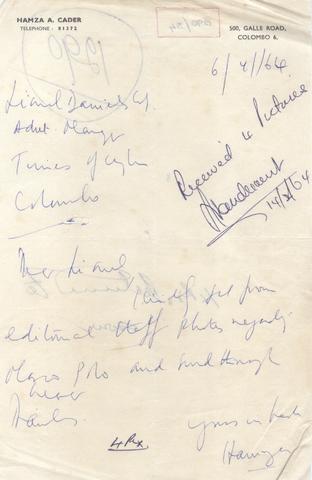 HAMZA A. CADER
TELEPHONE : 81372
500, GALLE ROAD,
COLOMBO 6.
1290
6/ /64.
Lionel Daniels Esq.
Advt. Manager
Times of Ceylon
Colombo
Received 4 Pictures
14/2/64
Dear Lionel
get from
editorial staff photos regarding
and send through
bearer
Thanks.
4 Pix
Yours
Hamza